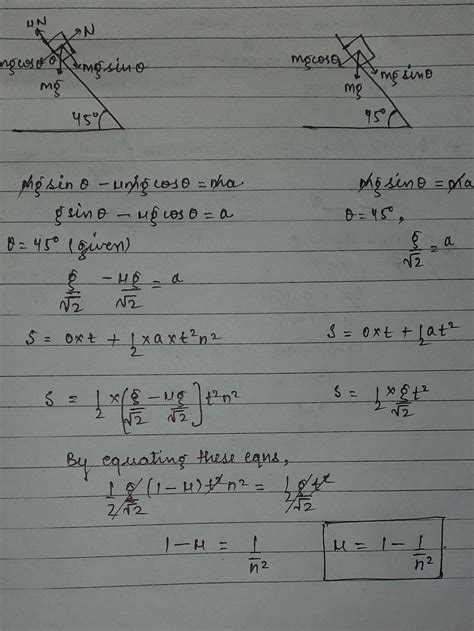 μN N
mgcosθ θ mgsinθ
mg
45°
mgcosθ mgsinθ
mg
45°
mgsinθ - μmgcosθ = ma
gsinθ - μgcosθ = a
θ = 45° (given)
g/√2 - μg/√2 = a
S = 0xt + 1/2 x a x t²n²
S = 1/2 x [g/√2 - μg/√2] t²n²
mgsinθ = ma
θ = 45°,
g/√2 = a
S = 0xt + 1/2 at²
S = 1/2 x g/√2 t²
By equating these eqns,
1/2 g/√2 (1-μ) t² n² = 1/2 g/√2 t²
1-μ = 1/n²
μ = 1 - 1/n²